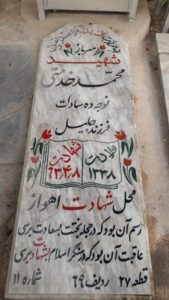 سرباز
شهید
محمد خدمتی
نوحه ده سادات
فرزند جلیل
ولادت
۱۳۳۸
شهادت
محل شهادت اهواز
رسم آن بود که در حجله بخت بسعادت برسی
عاقبت آن بود که در سنگر اسلام بشهادت برسی
قطعه ۲۷ ردیف ۶۹ شماره ۱۱